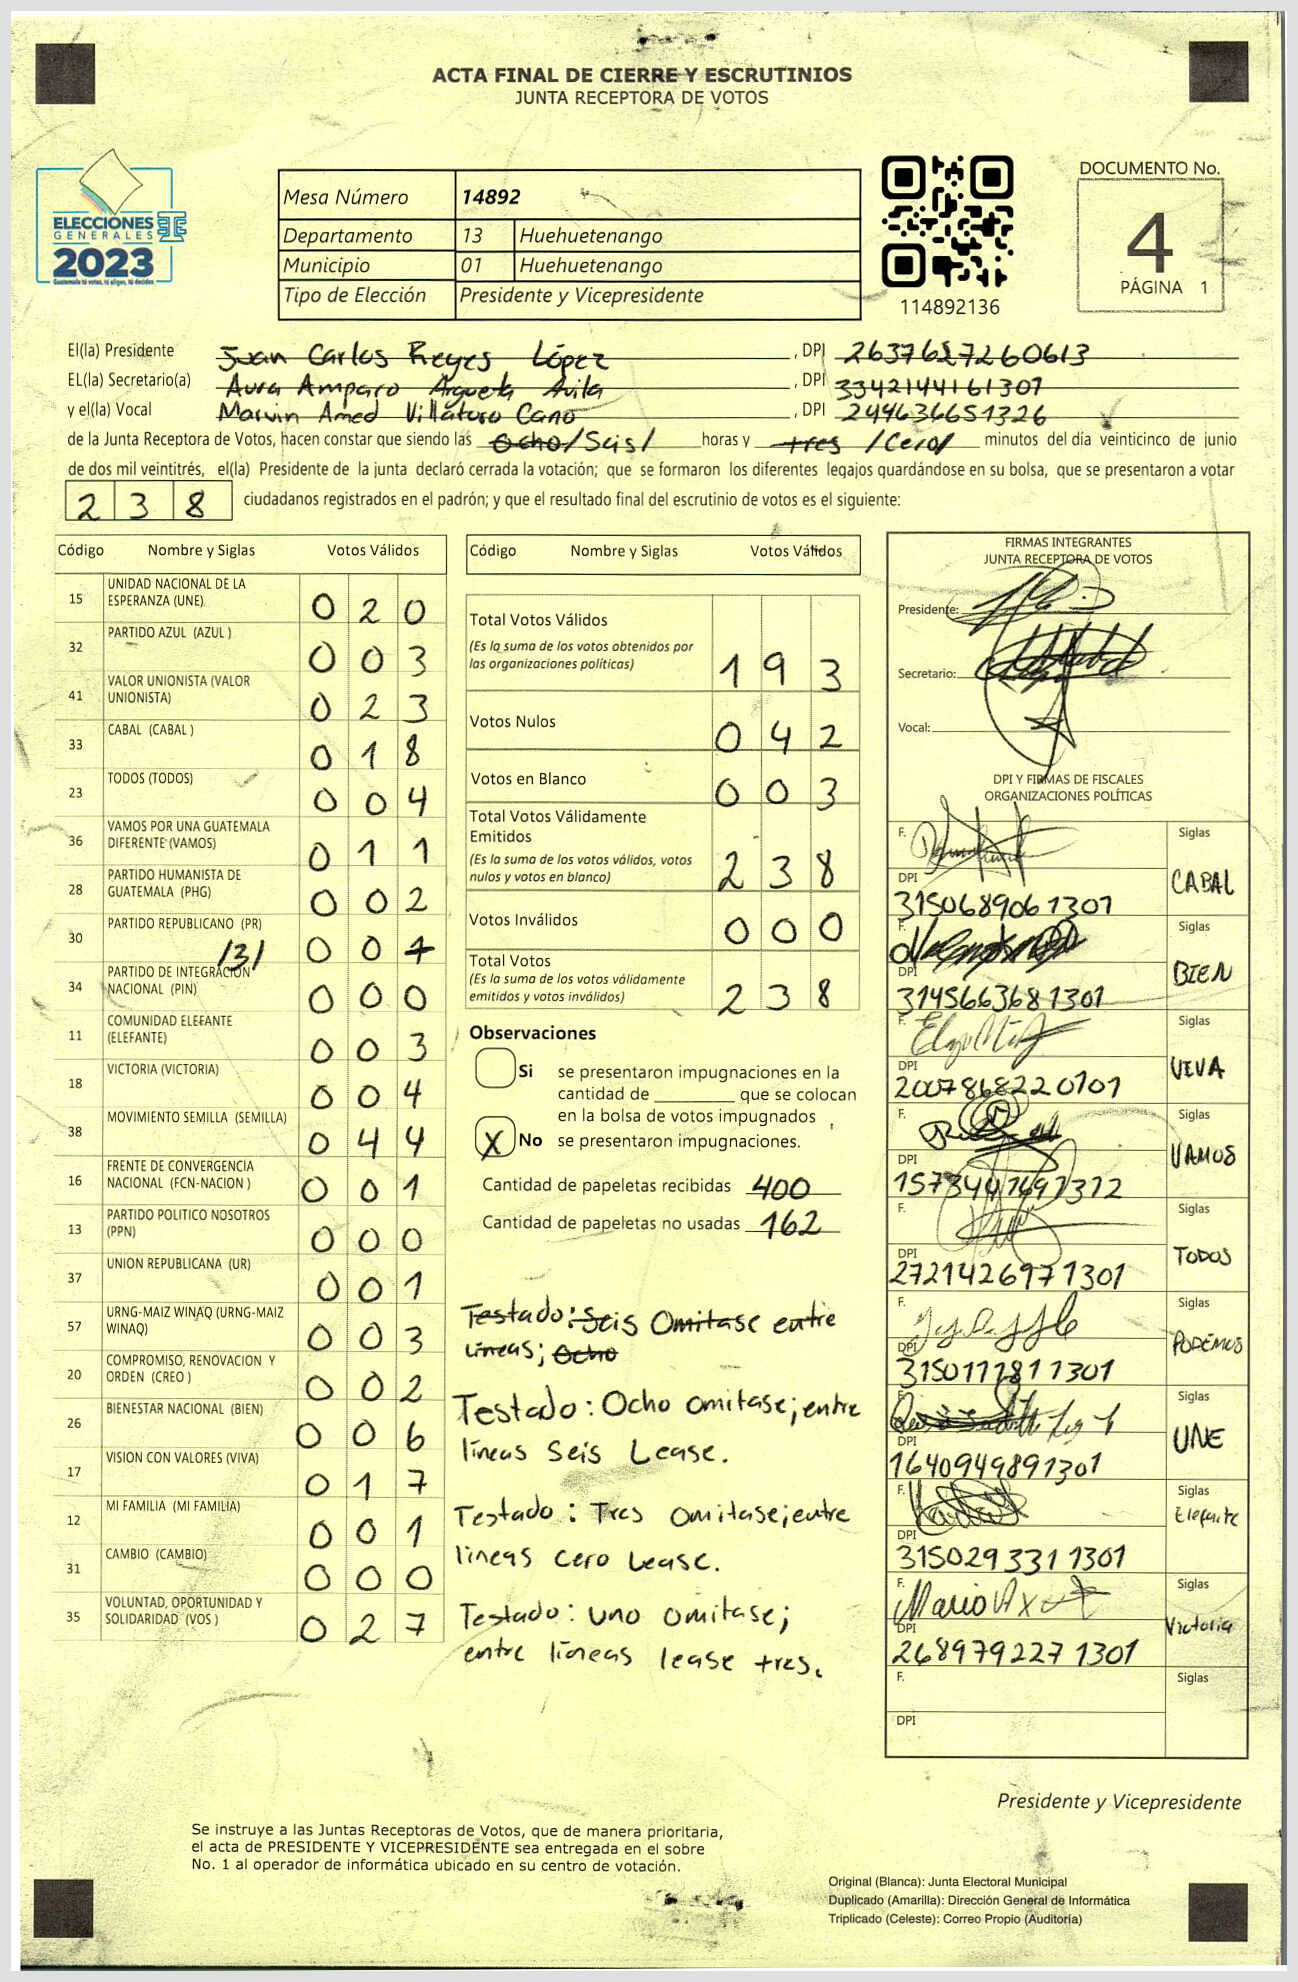 ACTA FINAL DE CIERRE Y ESCRUTINIOS
JUNTA RECEPTORA DE VOTOS
ELECCIONES
GENERALES
2023
Mesa Número 14892
Departamento 13 Huehuetenango
Municipio 01 Huehuetenango
Tipo de Elección Presidente y Vicepresidente
114892136
DOCUMENTO No.
4
PÁGINA 1
El(la) Presidente Juan Carlos Reyes López , DPI 2637617260613
EL(la) Secretario(a) Aura Amparo Argueta Avila , DPI 3342144161301
y el(la) Vocal Marvin Amed Villatoro Cano , DPI 244636651326
de la Junta Receptora de Votos, hacen constar que siendo las Ocho /Seis/ horas y tres /Cero/ minutos del día veinticinco de junio
de dos mil veintitrés, el(la) Presidente de la junta declaró cerrada la votación; que se formaron los diferentes legajos guardándose en su bolsa, que se presentaron a votar
238 ciudadanos registrados en el padrón; y que el resultado final del escrutinio de votos es el siguiente:
Código Nombre y Siglas Votos Válidos
15 UNIDAD NACIONAL DE LA ESPERANZA (UNE) 020
32 PARTIDO AZUL (AZUL ) 003
41 VALOR UNIONISTA (VALOR UNIONISTA) 023
33 CABAL (CABAL ) 018
23 TODOS (TODOS) 004
36 VAMOS POR UNA GUATEMALA DIFERENTE (VAMOS) 011
28 PARTIDO HUMANISTA DE GUATEMALA (PHG) 002
30 PARTIDO REPUBLICANO (PR) /3/ 001
34 PARTIDO DE INTEGRACION NACIONAL (PIN) 000
11 COMUNIDAD ELEFANTE (ELEFANTE) 003
18 VICTORIA (VICTORIA) 004
38 MOVIMIENTO SEMILLA (SEMILLA) 044
16 FRENTE DE CONVERGENCIA NACIONAL (FCN-NACION ) 001
13 PARTIDO POLITICO NOSOTROS (PPN) 000
37 UNION REPUBLICANA (UR) 001
57 URNG-MAIZ WINAQ (URNG-MAIZ WINAQ) 003
20 COMPROMISO, RENOVACION Y ORDEN (CREO ) 002
26 BIENESTAR NACIONAL (BIEN) 006
17 VISION CON VALORES (VIVA) 017
12 MI FAMILIA (MI FAMILIA) 001
31 CAMBIO (CAMBIO) 000
35 VOLUNTAD, OPORTUNIDAD Y SOLIDARIDAD (VOS ) 027
Código Nombre y Siglas Votos Válidos
Total Votos Válidos
(Es la suma de los votos obtenidos por
las organizaciones políticas) 193
Votos Nulos 042
Votos en Blanco 003
Total Votos Válidamente
Emitidos
(Es la suma de los votos válidos, votos
nulos y votos en blanco) 238
Votos Inválidos 000
Total Votos
(Es la suma de los votos válidamente
emitidos y votos inválidos) 238
Observaciones
Si se presentaron impugnaciones en la
cantidad de ________ que se colocan
en la bolsa de votos impugnados
X No se presentaron impugnaciones.
Cantidad de papeletas recibidas 400
Cantidad de papeletas no usadas 162
Testado: Seis Omitase entre
líneas; Ocho
Testado: Ocho omitase; entre
líneas Seis Lease.
Testado: Tres omitase; entre
líneas cero Lease.
Testado: uno omitase;
entre líneas lease tres.
FIRMAS INTEGRANTES
JUNTA RECEPTORA DE VOTOS
Presidente:
Secretario:
Vocal:
DPI Y FIRMAS DE FISCALES
ORGANIZACIONES POLÍTICAS
F. Siglas
DPI CABAL
3150689061301
F. Siglas
DPI BIEN
3145663681301
F. Siglas
DPI VIVA
2007868220101
F. Siglas
DPI VAMOS
F. Siglas
DPI TODOS
2721426971301
F. Siglas
DPI PODEMOS
3150177811301
F. Siglas
DPI UNE
1640949891301
F. Siglas
DPI Elefante
3150293311301
F. Mario Siglas
DPI Victoria
2689792271301
F. Siglas
DPI
Presidente y Vicepresidente
Se instruye a las Juntas Receptoras de Votos, que de manera prioritaria,
el acta de PRESIDENTE Y VICEPRESIDENTE sea entregada en el sobre
No. 1 al operador de informática ubicado en su centro de votación.
Original (Blanca): Junta Electoral Municipal
Duplicado (Amarilla): Dirección General de Informática
Triplicado (Celeste): Correo Propio (Auditoría)